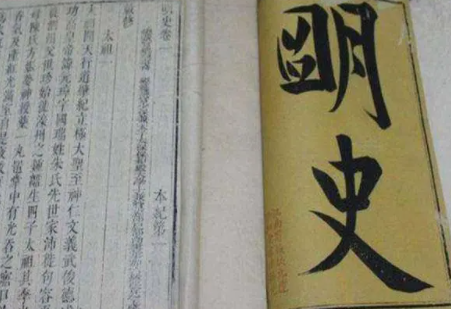 朙史
明史卷一 本紀第一
太祖一
太祖開天行道肇紀立極大聖至神仁文義武俊德
功高皇帝諱元璋字國瑞姓朱氏先世家沛徙句容
徙泗州父世珍始徙濠州之鍾離生四子太祖其季
母陳氏方娠夢神授藥一丸置掌中有光吞之寤口
香氣及產紅光滿室自是夜數